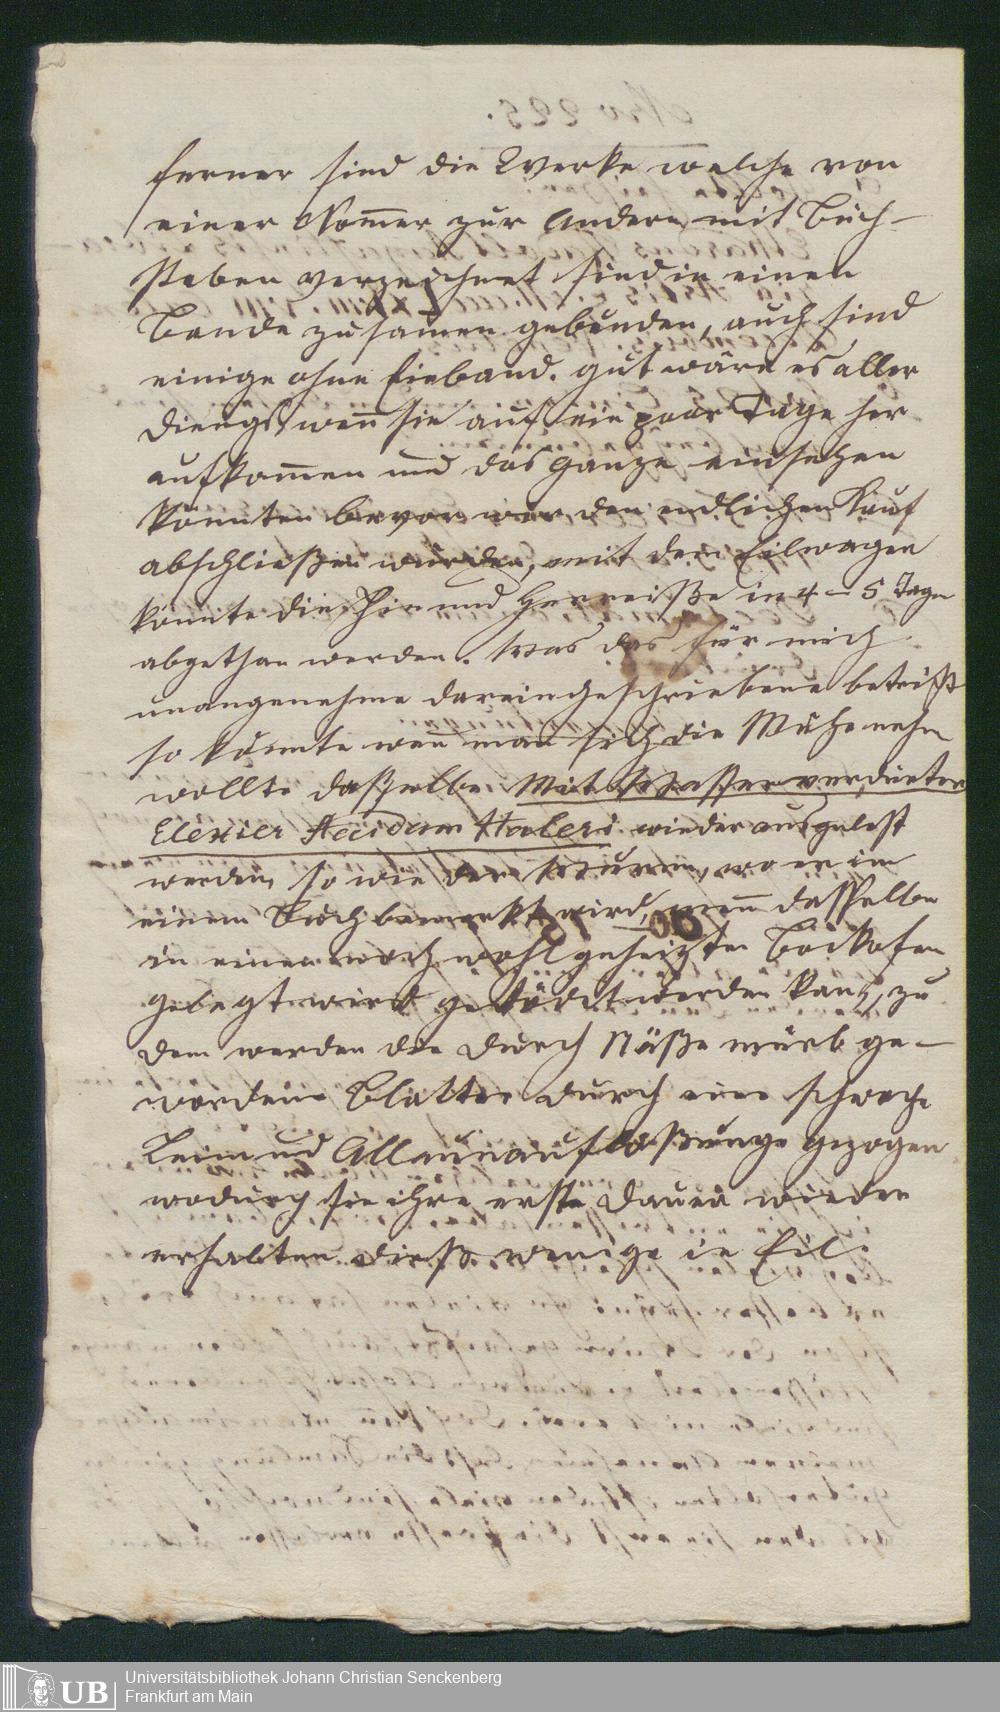 ferner sind die Werke welche von
einer Nom̅er zur Andern mit Buch-
staben verzeichnet sind in einen
Bande zusam̅en gebunden, auch sind
einige ohne Einband. gut wäre es aller
diengs wen̅ sie auf ein paar Täge her
aufkom̅en und das ganze einsehen
könnten bevor wir den endlichen Kauf
abschließen würden, mit dem Eilwagen
könnte die Hin und Herreiße in 4 – 5 Tagen
abgethan werden. Was das für mich
unangenehme dareingeschriebene betrifft
so könnte wen̅ man sich die Mühe nehm
wollte daßselbe Mit Waßer verdünter
Elexier Acidum Haleri wieder ausgelöst
werden, so wie der Wurm, wo er in
einem Buch bemerkt wird, wen̅ dasselbe
in einen noch wohl geheizten Backofen
gelegt wird getödtet werden kan̅, zu
dem werden die durch Näße mürb ge-
wordene Blätter durch eine schwache
Leim und Allaunauflößunge gezogen
wodurch sie ihre erste Dauer wieder
erhalten. dieß wenige in Eil.
Universitätsbibliothek Johann Christian Senckenberg
Frankfurt am Main
UB